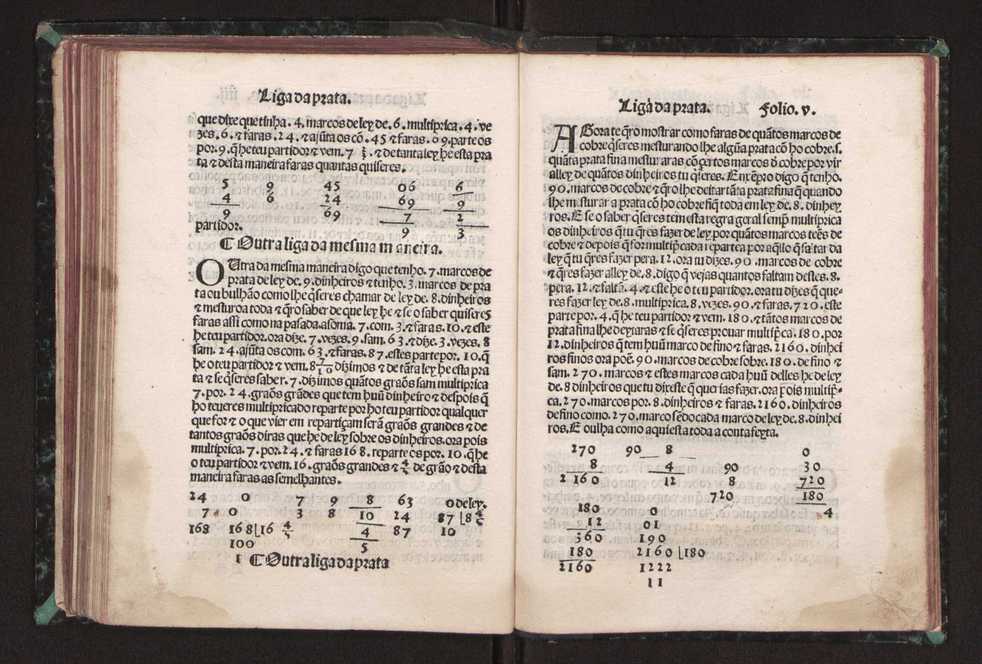 Liga da prata.
que dixe que tinha. 4. marcos de ley de. 6. multiprica. 4. ve
zes. 6. ⁊ faras. 24. ⁊ ajũta os cõ. 45 ⁊ faras. 69. parte os
por. 9. q̃ he teu partidor ⁊ vem. 7 ⅔. ⁊ de tanta ley he esta pra
ta ⁊ desta maneira faras quantas quiseres.
5 9 45 06 6
4 6 24 69 9
9 69 7 2
9 3
partidor.
☾ Outra liga da mesma maneira.
OUtra da mesma maneira digo que tenho. 7. marcos de
prata de ley de. 9. dinheiros ⁊ tenho. 3. marcos de pra
ta ou bulhão como lhe q̃seres chamar de ley de. 8. dinheiros
⁊ mesturoa toda ⁊ q̃ro saber de que ley he ⁊ se o saber quiseres
faras assi como na pasada. asoma. 7. com. 3. ⁊ faras. 10. ⁊ este
he teu partidor. ora dize. 7. vezes. 9. sam. 63. ⁊ dize. 3. vezes. 8
sam. 24. ajũta os com. 63. ⁊ faras. 87. estes parte por. 10. q̃
he o teu partidor ⁊ vem. 8 7/10 dizimos ⁊ de tãta ley he esta pra
ta ⁊ se q̃seres saber. 7. dizimos quãtos graõs sam multiprica
7. por. 24. graõs grãdes que tem huũ dinheiro ⁊ despois q̃
ho teueres multipricado reparte por ho teu partidor qualquer
que for ⁊ o que vier em repartiçam sera graõs grandes ⁊ de
tantos graõs diras que he de ley sobre os dinheiros. ora pois
multiprica. 7. por. 24. ⁊ faras 168. reparte os por. 10. q̃ he
o teu partidor ⁊ vem. 16. graõs grandes ⁊ ⅘ de grão ⁊ desta
maneira faras as semelhantes.
24 0 7 9 8 63 0 de ley.
7 0 3 8 10 24 87 ⌊8 ⅘
168 168⌊16 ⅘ 4 87 10
100 5
1 ☾ Outra liga da prata
Liga da prata. Folio. v.
AGora te q̃ro mostrar como faras de quãtos marcos de
cobre q̃seres mesturando lhe algũa prata cõ ho cobre. s.
quãta prata fina mesturaras cõ certos marcos d̃ cobre por vir
alley de quãtos dinheiros tu q̃seres. Enxẽpro digo q̃ tenho.
90. marcos de cobre ⁊ q̃ro lhe deitar tãta prata fina q̃ quando
lhe misturar a prata cõ ho cobre fiq̃ toda em ley de. 8. dinhey
ros. E se o saber q̃seres tem esta regra geral semp̃ multiprica
os dinheiros q̃ tu q̃res fazer de ley por quãtos marcos teẽs de
cobre ⁊ depois q̃ for multipricada reparte a por aq̃llo q̃ faltar da
ley q̃ tu q̃res fazer pera. 12. ora tu dizes. 90. marcos de cobre
⁊ q̃res fazer alley de. 8. digo q̃ vejas quantos faltam destes. 8.
pera. 12. ⁊ faltã. 4. ⁊ este he o teu partidor. ora tu dizes q̃ que-
res fazer ley de. 8. multiprica. 8. vezes. 90. ⁊ faras. 720. este
parte por. 4. q̃ he teu partidor ⁊ vem. 180. ⁊ tãtos marcos de
prata fina lhe deytaras ⁊ se q̃seres prouar multip̃ca. 180. por
12. dinheiros q̃ tem huũ marco de fino ⁊ faras. 2160. dinhei
ros finos ora poẽ. 90. marcos de cobre sobre. 180. de fino ⁊
sam. 270. marcos ⁊ estes marcos cada huũ delles he de ley
de. 8 dinheiros que tu dixeste q̃ querias fazer. ora pois multip̃-
ca. 270. marcos por. 8. dinheiros ⁊ faras. 2160. dinheiros
de fino como. 270. marco sẽdo cada marco de ley de. 8. dinhei
ros. E oulha como aqui esta toda a conta feyta.
270 90 8 0
8 4 90 30
2160 12 8 720
720 180
180 0 4
12 01
360 190
180 2160 ⌊180
2160 1222
11